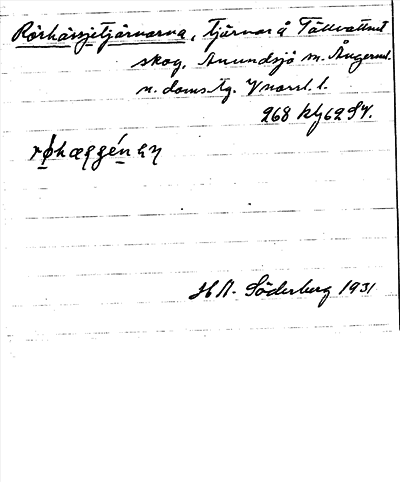 Rörhässjetjärnarna, tjärnar å Tallvattnet
skog, Anundsjö sn. Ångerml.
n. doms.tg. Vnorrl. l.
268 klj 62 S4.
H A. Söderberg 1931